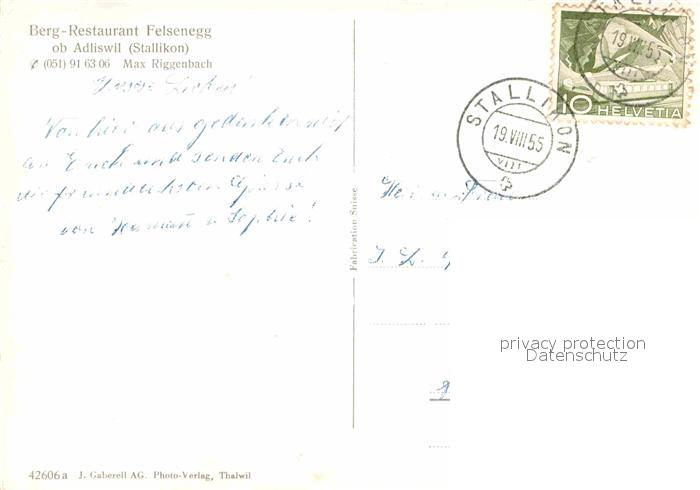 Berg-Restaurant Felsenegg
ob Adliswil (Stallikon)
✆ (051) 91 63 06 Max Riggenbach
Unsere Lieben!
Von hier aus gedenken wir
an Euch und senden Euch
die freundlichsten Grüsse
von u. Sophie!
Fabrication Suisse
42606 a J. Gaberell AG. Photo-Verlag, Thalwil
10 HELVETIA
19.VIII.55
VIII
STALLIKON
19.VIII.55
VIII
Herr u. Frau
privacy protection
Datenschutz